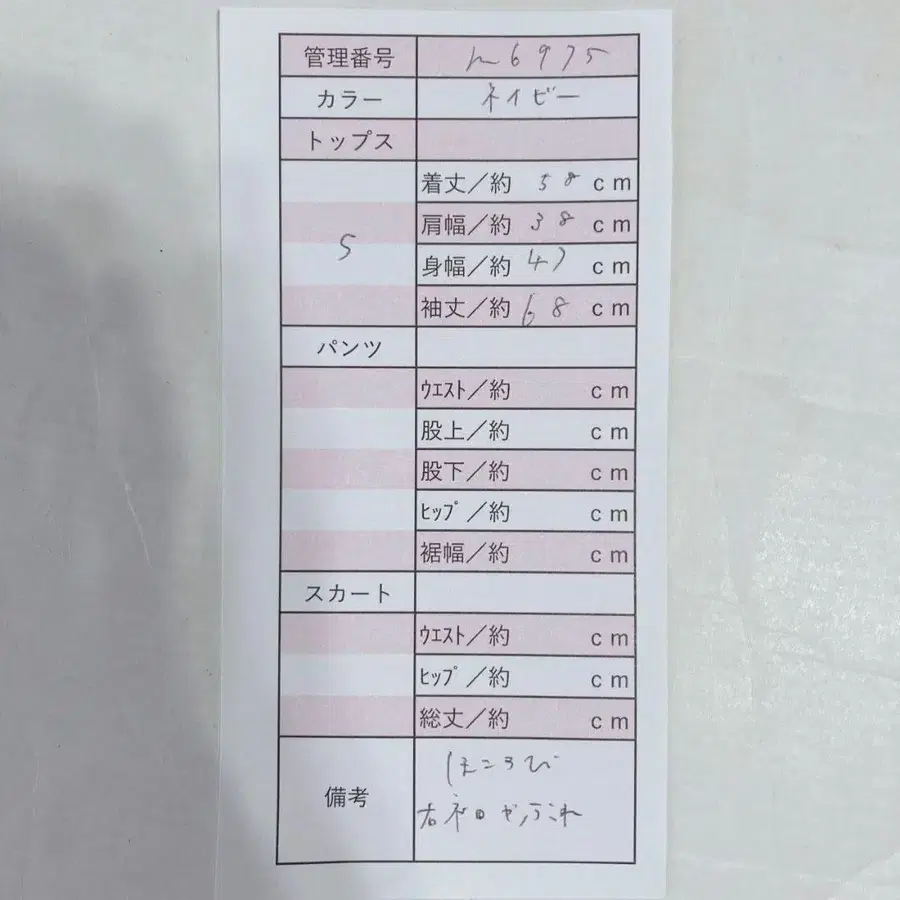 管理番号 m6975
カラー ネイビー
トップス
S
着丈/約 58 cm
肩幅/約 38 cm
身幅/約 47 cm
袖丈/約 68 cm
パンツ
ウエスト/約 cm
股上/約 cm
股下/約 cm
ヒップ/約 cm
裾幅/約 cm
スカート
ウエスト/約 cm
ヒップ/約 cm
総丈/約 cm
備考
ほころび
右袖口